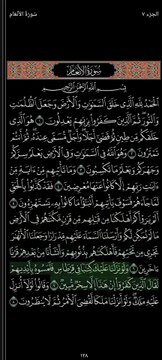 الجزء ٧ سورة الأنعام
سُورَةُ الأَنْعَامِ
بِسْمِ ٱللَّهِ ٱلرَّحْمَٰنِ ٱلرَّحِيمِ
ٱلْحَمْدُ لِلَّهِ ٱلَّذِى خَلَقَ ٱلسَّمَٰوَٰتِ وَٱلْأَرْضَ وَجَعَلَ ٱلظُّلُمَٰتِ
وَٱلنُّورَ ثُمَّ ٱلَّذِينَ كَفَرُوا۟ بِرَبِّهِمْ يَعْدِلُونَ ١ هُوَ ٱلَّذِى
خَلَقَكُم مِّن طِينٍ ثُمَّ قَضَىٰٓ أَجَلًا وَأَجَلٌ مُّسَمًّى عِندَهُۥ ثُمَّ أَنتُمْ
تَمْتَرُونَ ٢ وَهُوَ ٱللَّهُ فِى ٱلسَّمَٰوَٰتِ وَفِى ٱلْأَرْضِ يَعْلَمُ سِرَّكُمْ
وَجَهْرَكُمْ وَيَعْلَمُ مَا تَكْسِبُونَ ٣ وَمَا تَأْتِيهِم مِّنْ ءَايَةٍ مِّنْ
ءَايَٰتِ رَبِّهِمْ إِلَّا كَانُوا۟ عَنْهَا مُعْرِضِينَ ٤ فَقَدْ كَذَّبُوا۟ بِٱلْحَقِّ
لَمَّا جَآءَهُمْ فَسَوْفَ يَأْتِيهِمْ أَنۢبَٰٓؤُا۟ مَا كَانُوا۟ بِهِۦ يَسْتَهْزِءُونَ
٥ أَلَمْ يَرَوْا۟ كَمْ أَهْلَكْنَا مِن قَبْلِهِم مِّن قَرْنٍ مَّكَّنَّٰهُمْ فِى ٱلْأَرْضِ
مَا لَمْ نُمَكِّن لَّكُمْ وَأَرْسَلْنَا ٱلسَّمَآءَ عَلَيْهِم مِّدْرَارًا وَجَعَلْنَا ٱلْأَنْهَٰرَ
تَجْرِى مِن تَحْتِهِمْ فَأَهْلَكْنَٰهُم بِذُنُوبِهِمْ وَأَنشَأْنَا مِنۢ بَعْدِهِمْ قَرْنًا
ءَاخَرِينَ ٦ وَلَوْ نَزَّلْنَا عَلَيْكَ كِتَٰبًا فِى قِرْطَاسٍ فَلَمَسُوهُ بِأَيْدِيهِمْ
لَقَالَ ٱلَّذِينَ كَفَرُوٓا۟ إِنْ هَٰذَآ إِلَّا سِحْرٌ مُّبِينٌ ٧ وَقَالُوا۟ لَوْلَآ أُنزِلَ
عَلَيْهِ مَلَكٌ وَلَوْ أَنزَلْنَا مَلَكًا لَّقُضِىَ ٱلْأَمْرُ ثُمَّ لَا يُنظَرُونَ ٨
١٢٨